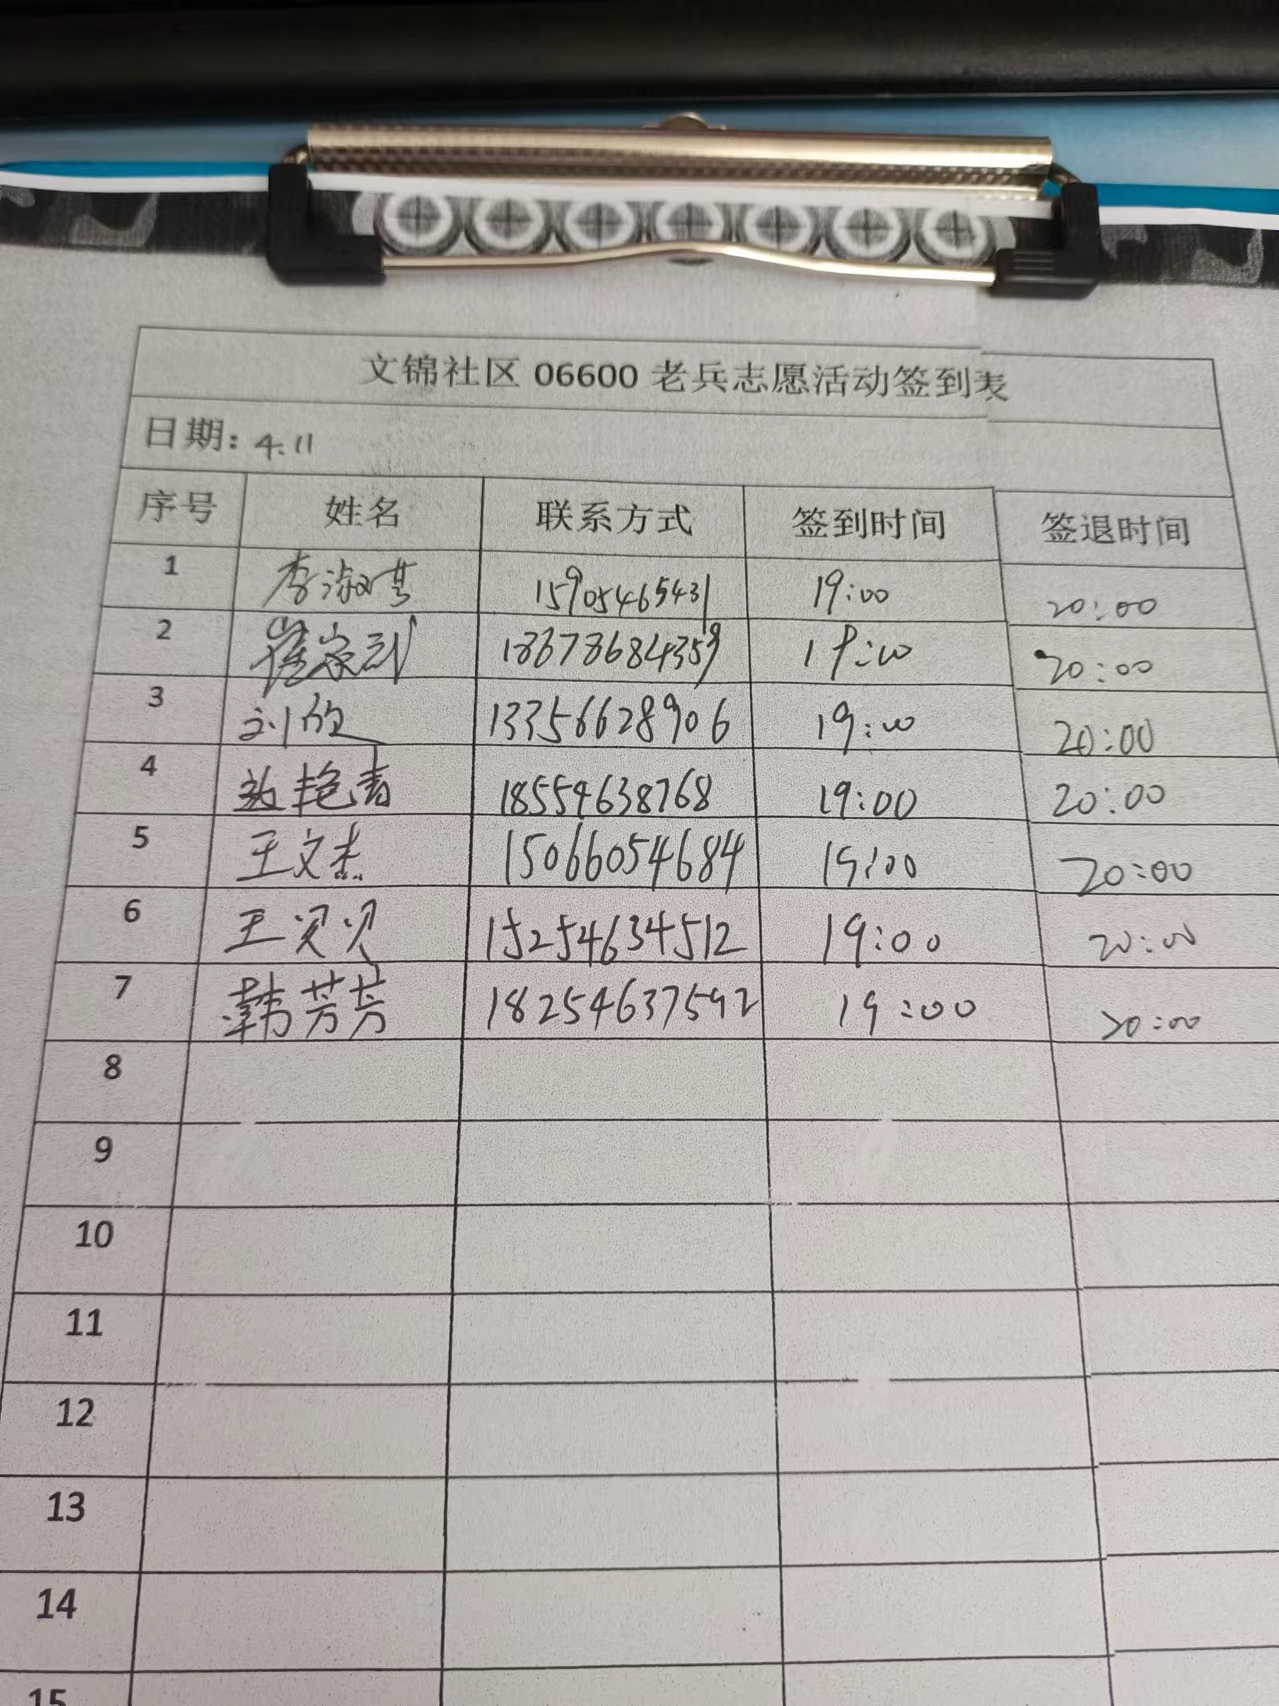 文锦社区 06600 老兵志愿活动签到表
日期: 4.11
序号 姓名 联系方式 签到时间 签退时间
1 李淑英 15905465431 19:00 20:00
2 崔家 18678684359 19:00 20:00
3 刘 13356628906 19:00 20:00
4 艳青 18554638768 19:00 20:00
5 王文杰 15066054684 19:00 20:00
6 王贝贝 15254634512 19:00 20:00
7 韩芳芳 18254637592 19:00 20:00
8
9
10
11
12
13
14
15